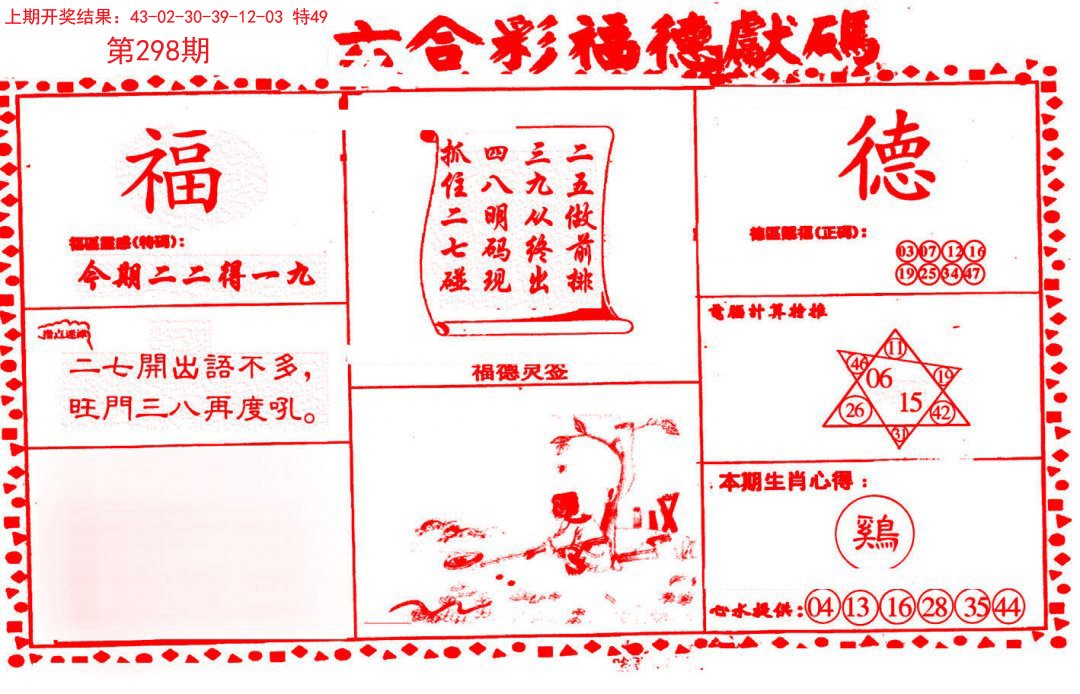 上期开奖结果：43-02-30-39-12-03 特49
第298期
六合彩福德獻碼
福
福區靈感(特碼)：
今期二二得一九
二七開出語不多，
旺門三八再度吼。
二五做前排
三九从终出
四八明码现
抓住二七碰
福德灵签
德
德區賜福(正碼)：
03 07 12 16
19 25 34 47
電腦計算特推
11
46 19
06
15
26 42
31
本期生肖心得：
鷄
心水提供：04 13 16 28 35 44